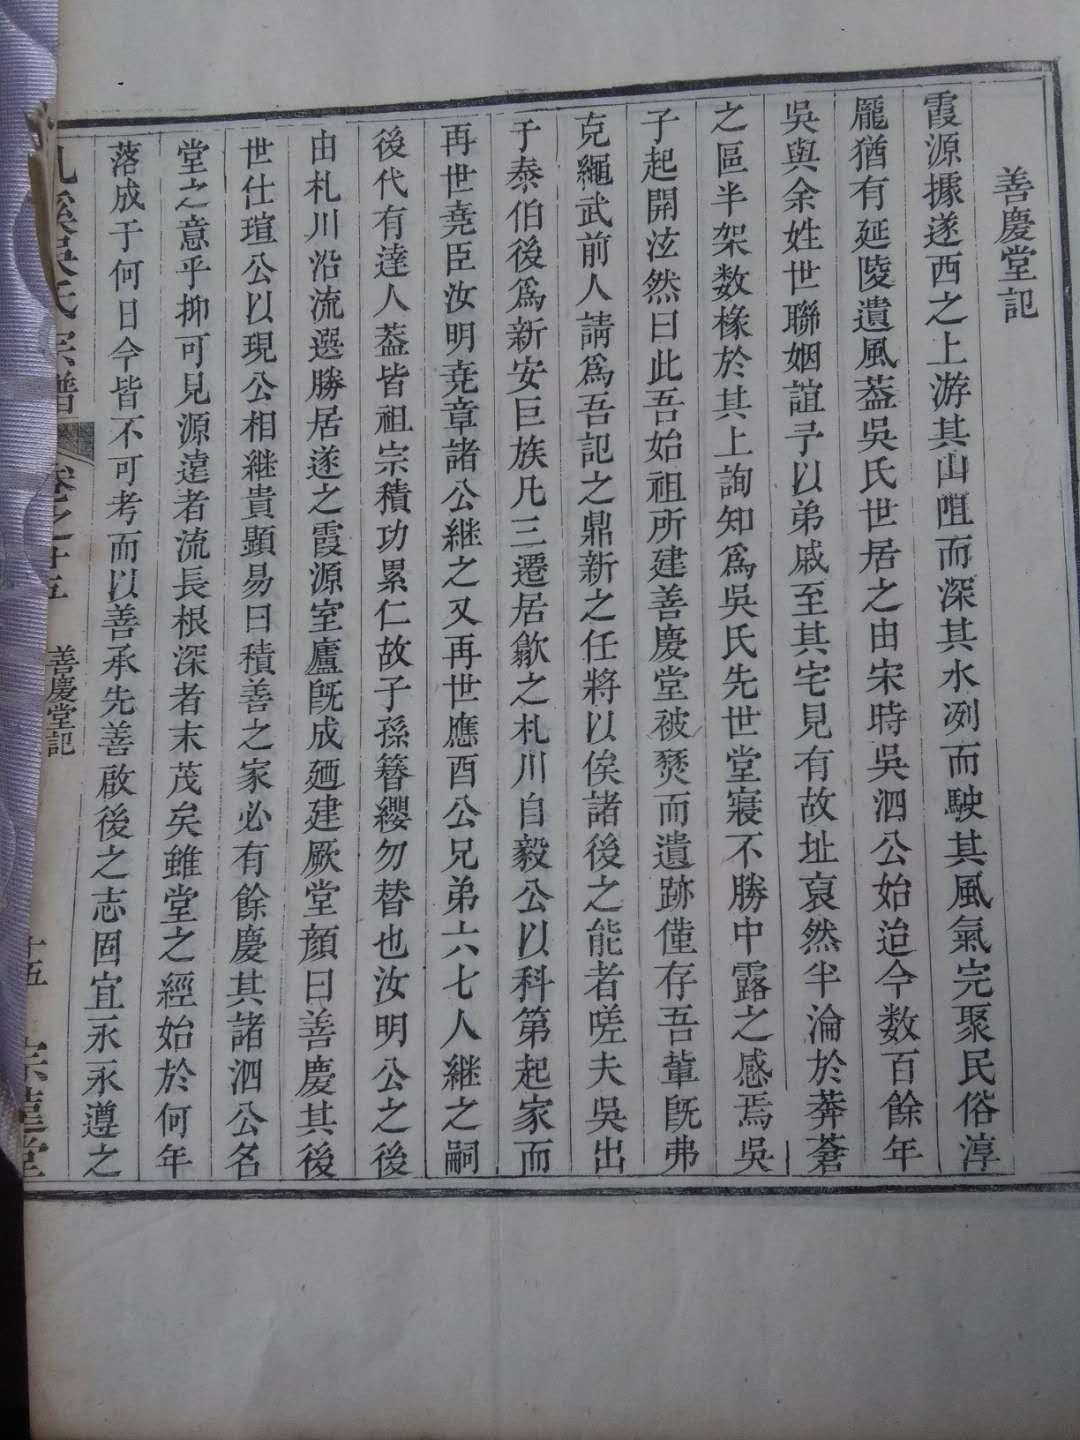 善慶堂記
霞源據遂西之上游其山岨而深其水冽而駛其風氣完聚民俗淳
龎猶有延陵遺風葢吳氏世居之由宋時吳泗公始迨今数百餘年
吳與余姓世聯姻誼予以弟戚至其宅見有故址裒然半淪於莽蒼
之區半架数椽於其上詢知爲吳氏先世堂寢不勝中露之感焉吳
子起開泫然曰此吾始祖所建善慶堂被燹而遺跡僅存吾輩旣弗
克繩武前人請爲吾記之鼎新之任將以俟諸後之能者嗟夫吳出
于泰伯後爲新安巨族凡三遷居歙之札川自毅公以科第起家而
再世堯臣汝明堯章諸公継之又再世應酉公兄弟六七人継之嗣
後代有達人葢皆祖宗積功累仁故子孫簪纓勿替也汝明公之後
由札川沿流選勝居遂之霞源室廬旣成廼建厥堂顔曰善慶其後
世仕瑄公以現公相継貴顯易曰積善之家必有餘慶其諸泗公名
堂之意乎抑可見源遠者流長根深者末茂矣雖堂之經始於何年
落成于何日今皆不可考而以善承先善啟後之志固宜永永遵之
吳氏宗譜 卷之十五 善慶堂記 十五